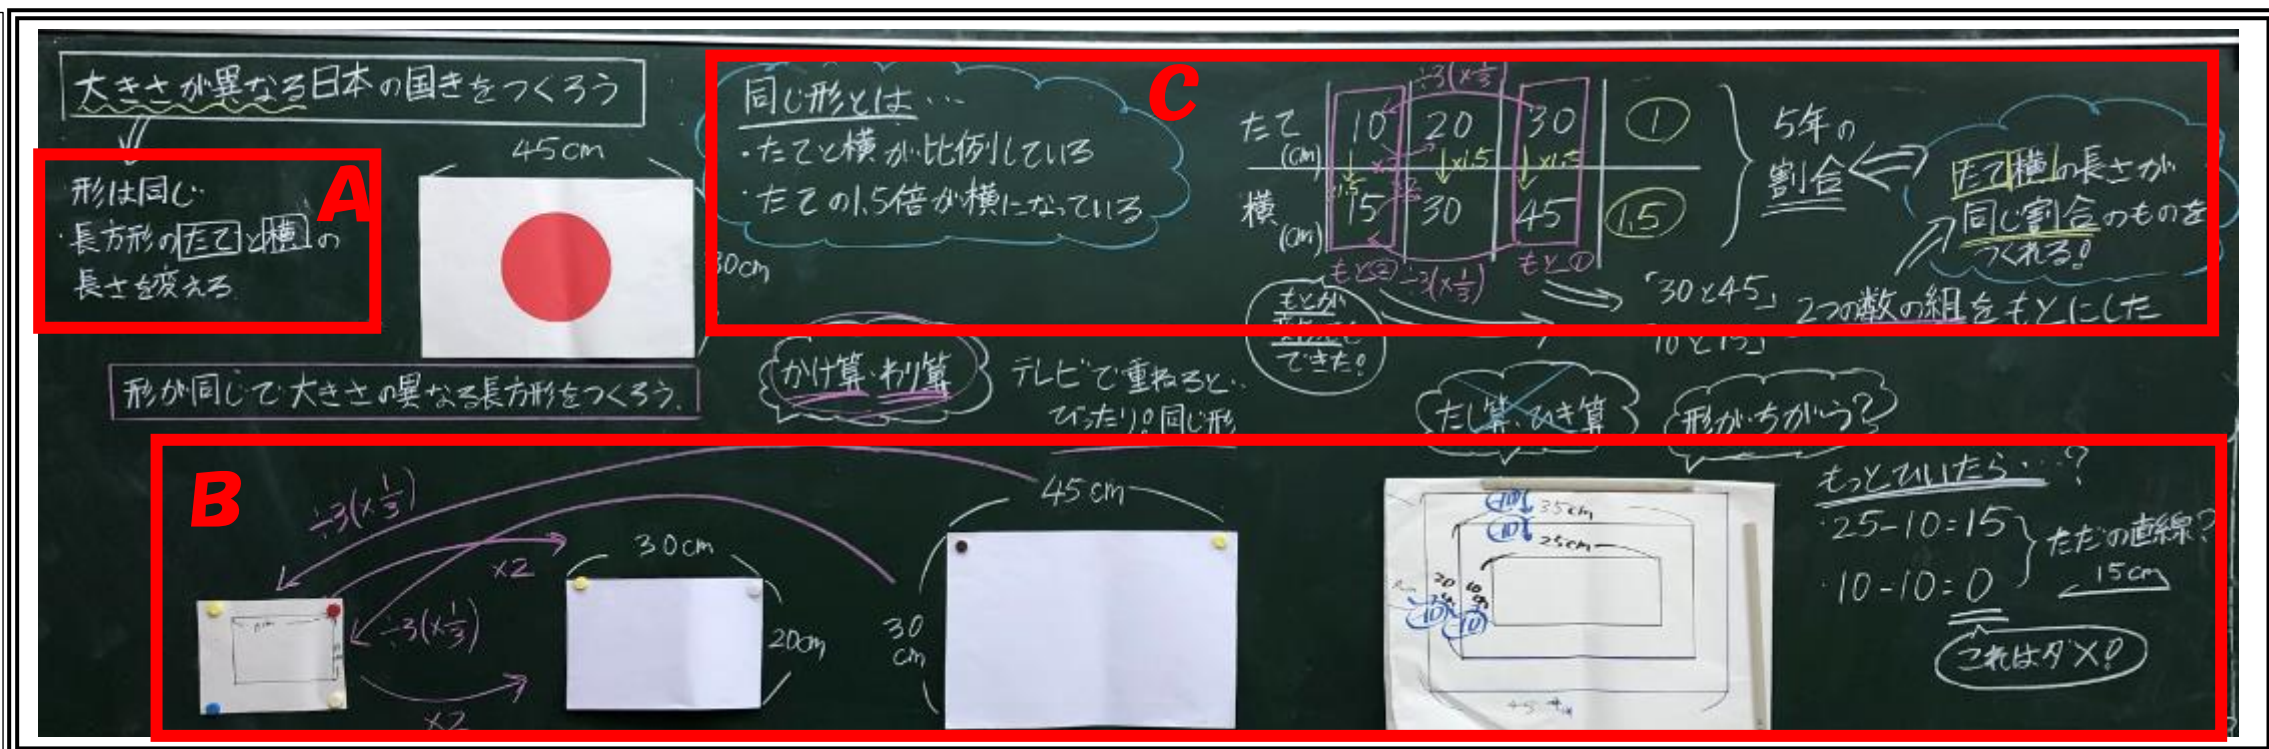 大きさが異なる日本の国きをつくろう
A
形は同じ
・長方形のたてと横の
長さを変える
45cm
30cm
形が同じで大きさの異なる長方形をつくろう.
C
同じ形とは…
・たてと横が比例している
・たての1.5倍が横になっている
÷3(×1/3)
たて(cm) 10 20 30 1
×1.5 ×1.5
横(cm) 15 30 45 1.5
もと② ÷3(×1/3) もと①
5年の
割合
たて横の長さが
同じ割合のものを
つくれる!
もとが
できた!
「30と45」
10と15」
2つの数の組をもとにした
かけ算・わり算
テレビで重ねると…
ぴったり!同じ形
たし算・ひき算
形がちがう?
B
÷3(×1/3)
×2
÷3(×1/3)
×2
30cm
20cm
45cm
30
cm
35cm
25cm
もっとひいたら…?
・25-10=15
・10-10=0
ただの直線?
15cm
これはダメ!